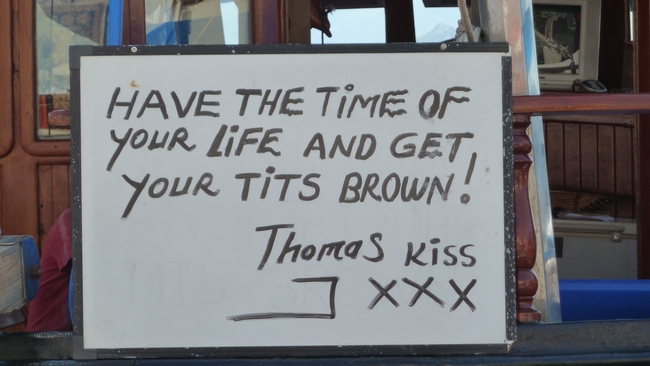 HAVE THE TiME OF
YOUR LiFE AND GET
YOUR TiTS BROWN!
THOMAS KiSS
XXX